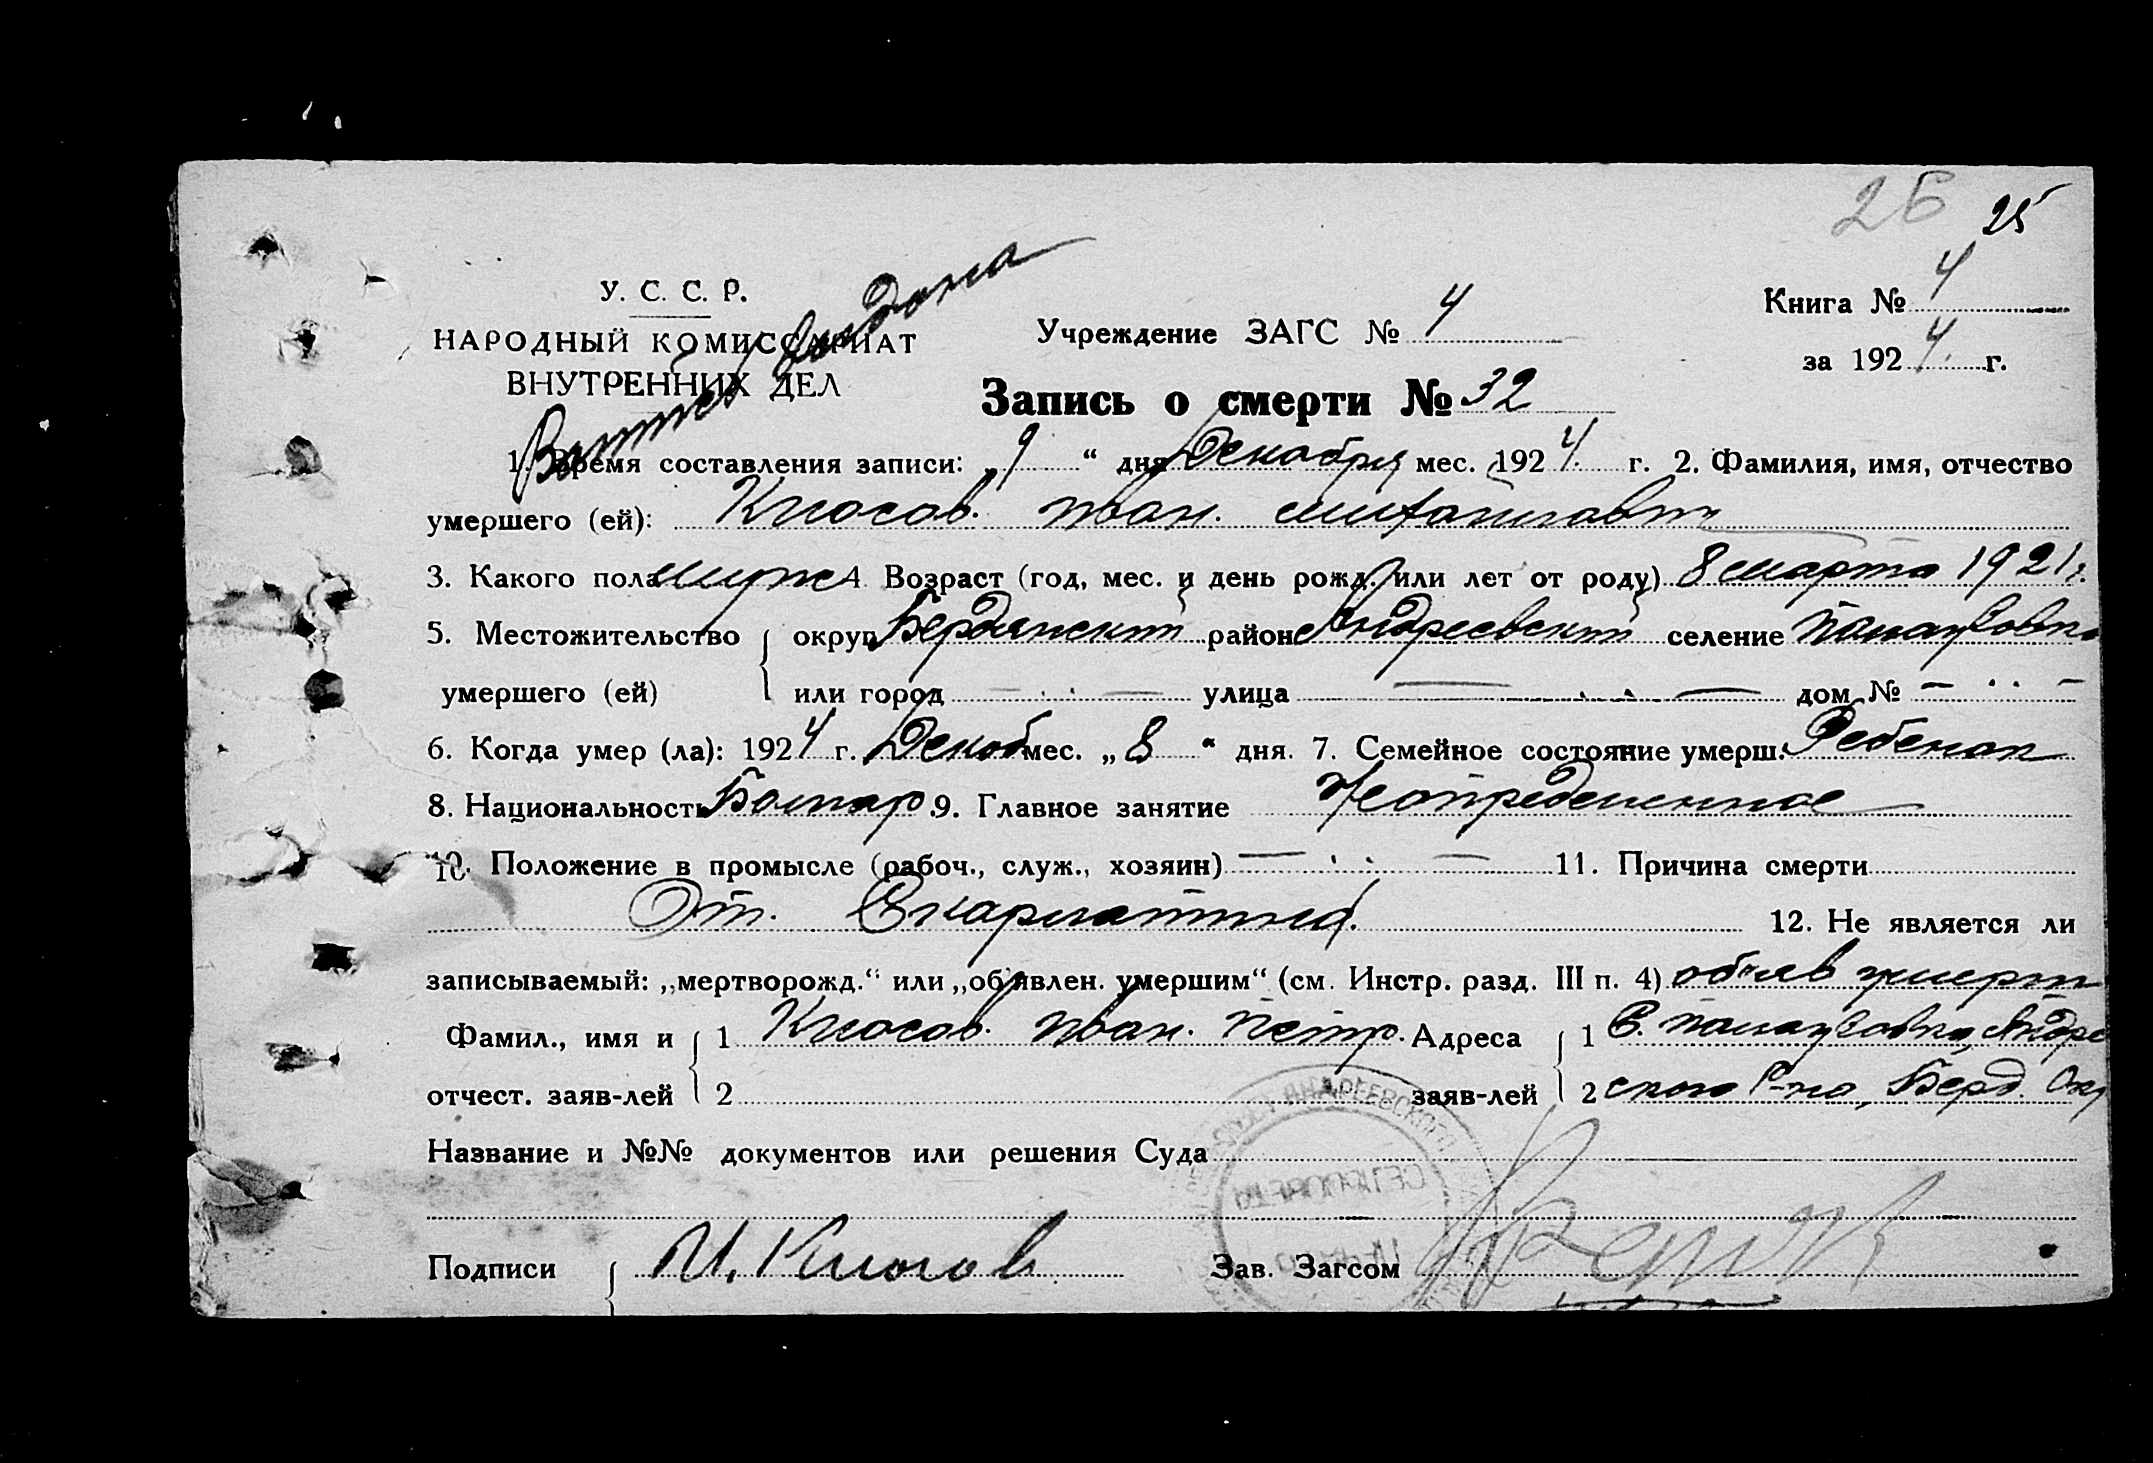 26 25
У. С. С. Р.
НАРОДНЫЙ КОМИССАРИАТ
ВНУТРЕННИХ ДЕЛ
выдана
Учреждение ЗАГС № 4
Книга № 4
за 1924 г.
Запись о смерти № 32
1. Время составления записи: „9“ дня Декабря мес. 1924 г. 2. Фамилия, имя, отчество
умершего (ей): Клюсов Иван
3. Какого пола муж 4 Возраст (год, мес. и день рожд. или лет от роду) 8 марта 1921 г.
5. Местожительство округ Бердянский район Андреевский селение
умершего (ей) или город — · · — улица — · · — дом № — · · —
6. Когда умер (ла): 1924 г. Декаб мес. „8“ дня. 7. Семейное состояние умерш. Ребенок
8. Национальность Болгар. 9. Главное занятие Неопределенное
10. Положение в промысле (рабоч., служ., хозяин) — · · — 11. Причина смерти
От Скарлатины. 12. Не является ли
записываемый: „мертворожд.“ или „об'явлен. умершим“ (см. Инстр. разд. III п. 4) об'яв умерш
Фамил., имя и 1 Клюсов Иван Петр. Адреса 1 С. Андре
отчест. заяв-лей 2 заяв-лей 2 ского Р-на, Берд. Окр
Название и №№ документов или решения Суда
АНДРЕЕВСКОГО
Подписи И. Клюсов Зав. Загсом